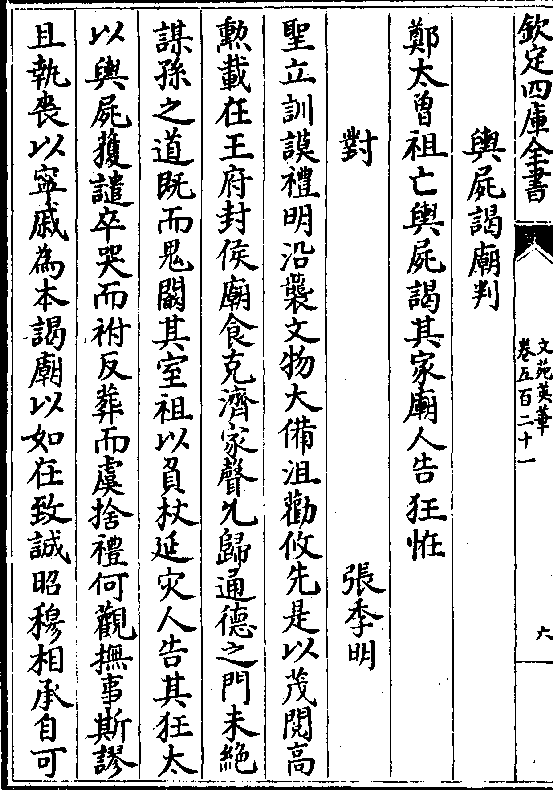 欽定四庫全書
文苑英華
卷五百二十一
六
輿屍謁廟判
鄭太曾祖亡輿屍謁其家廟人告狂恠
對
張季明
聖立訓謨禮明沿襲文物大備沮勸攸先是以茂閱高
勲載在王府封侯廟食克濟家聲允歸通德之門未絶
謀孫之道既而鬼闞其室祖以負杖延灾人告其狂太
以輿屍獲譴卒哭而祔反葬而虞捨禮何觀撫事斯謬
且執喪以寧戚為本謁廟以如在致誠昭穆相承自可